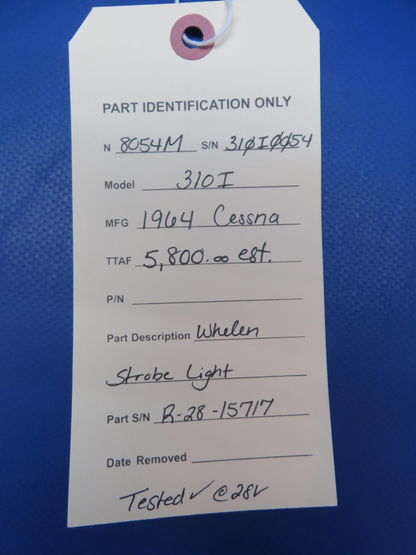 PART IDENTIFICATION ONLY
N 8054M S/N 310I0054
Model 310I
MFG 1964 Cessna
TTAF 5,800.00 est.
P/N
Part Description Whelen
Strobe Light
Part S/N R-28-15717
Date Removed
Tested ✓ @28V